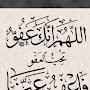 اللهم إنك عفو
تحب العفو
فاعف عني